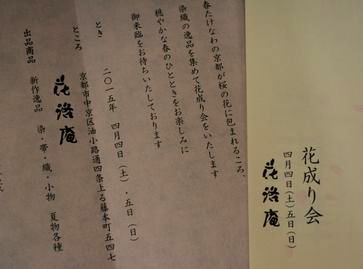 花成り会
四月四日(土)五日(日)
花洛庵
春たけなわの京都が桜の花に包まれるころ、
染織の逸品を集めて花成り会をいたします
穏やかな春のひとときをお楽しみに
御来臨をお待ちいたしております
とき 二〇一五年 四月四日(土)・五日(日)
ところ 京都市中京区油小路通四条上る藤本町五四七
花洛庵
出品商品 新作逸品 染・帯・織・小物 夏物各種